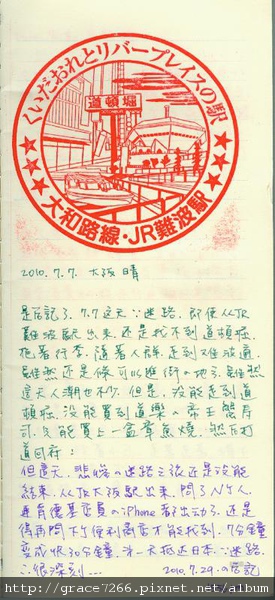 くいだおれとリバープレイスの駅
道頓堀
大和路線・JR難波駅
2010.7.7. 大阪 晴
是忘記了. 7.7這天∵迷路. 即使從JR
難波駅出來. 還是找不到道頓堀.
拖著行李. 隨著人群. 走到
雖然還是條可以逛街的地方. 雖然
這天人潮也不少. 但是. 沒能走到道
頓堀. 沒能買到道樂の帝王蟹壽
司. 只能買上一盒章魚燒. 然後打
道回府:
但這天. 悲慘の迷路之旅還是沒能
結束. 從JR大阪駅出來. 問了N个人.
iPhone都出動了. 還是
得再問下便利商店才能找到. 7分鐘
變成快30分鐘. 第一天抵達日本∵迷路.
∴很深刻...
2010.7.29.の后記
http://grace7266.pixnet.net/album